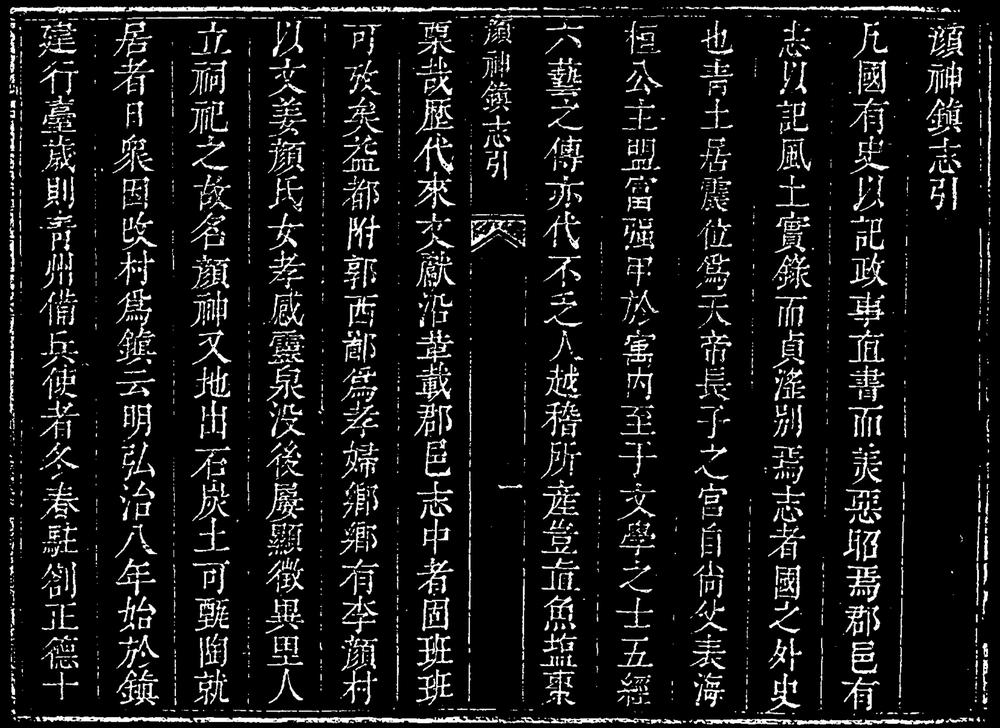 顔神鎮志引
凡國有史以記政事直書而美惡昭焉郡邑有
志以記風土實錄而貞淫别焉志者國之外史
也青土居震位爲天帝長子之宮自尚父表海
桓公主盟富强甲於寓内至于文學之士五經
六藝之傳亦代不乏人越稽所産豈直魚塩棗
顔神鎮志引
一
栗哉歷代來文獻沿革載郡邑志中者固班班
可攷矣益都附郭西鄙爲孝婦鄉鄉有李顔村
以文姜顔氏女孝感靈泉没後屡顯徵異里人
立祠祀之故名顔神又地出石炭土可甄陶就
居者日衆因改村爲鎮云明弘治八年始於鎮
建行臺歲則青州備兵使者冬春駐劄正德十